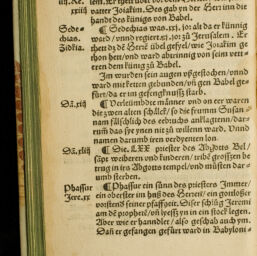 iiij. Re.
xxiiij vatter Joiakim. Des gab yn der Herr inn die
handt des künigs von Babel.
Sede- ¶ Sedechias was.xxj. jor als da er künnig
chias. ward / vnnd regiert.xj. joz zu Jerusalem. Er
Zidkia. thett dz de Herrē übel gefyel / wie Joiakim ge
thon hett / vnd ward abtrinnig von seim vett-
erem dem künig zu Babel.
Im wurden sein augen vßgestochen / vnnd
ward mit ketten gebunden / vñ gen Babel ge-
fürt / da er im gefengknuß starb.
Dā.xiij ¶ Verleümbdte männer vnd on eer waren
die zwen alten schälck / so die frumm Susan-
nam fälschlich des eebruchs anklagtenn / dar-
umb das sye ynen nit zů willenn ward. Vnnd
namen darumb iren verdyenten lon.
Dā.xiiij ¶ Die. LXX priester des Abgotts Bel /
sāpt weiberen vnd kinderen / tribē grossen be
trug in irs Abgotts tempel / vnd müßten dar-
umb sterben.
Phassur ¶ Phassur ein sünn des priesters Immer /
Jere.xx ein oberster im hauß des Herren / ein gottloser
vorstend seiner pfaffheit. Diser schlůg Jeremi
am dē prophetē / vñ lyeß yn in ein stock legen.
Aber wie er handlet / also geschah auch ym.
Dañ er gefangen gefürt ward in Babyloni-